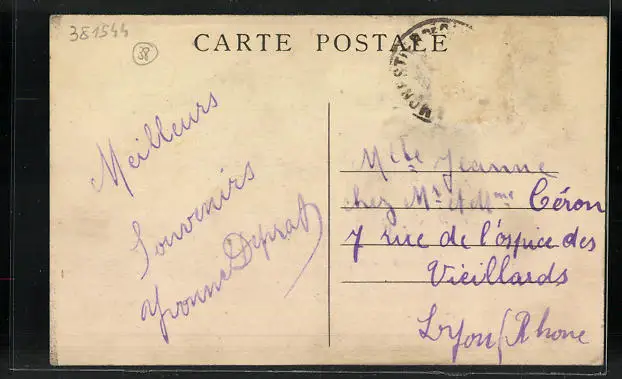 381544
38
CARTE POSTALE
MONESTIER DE C
Meilleurs
Souvenirs
Yvonne Deprat
Mlle Jeanne
chez Mr et Mme Céron
7 rue de l'ospice des
Vieillards
Lyon/Rhone